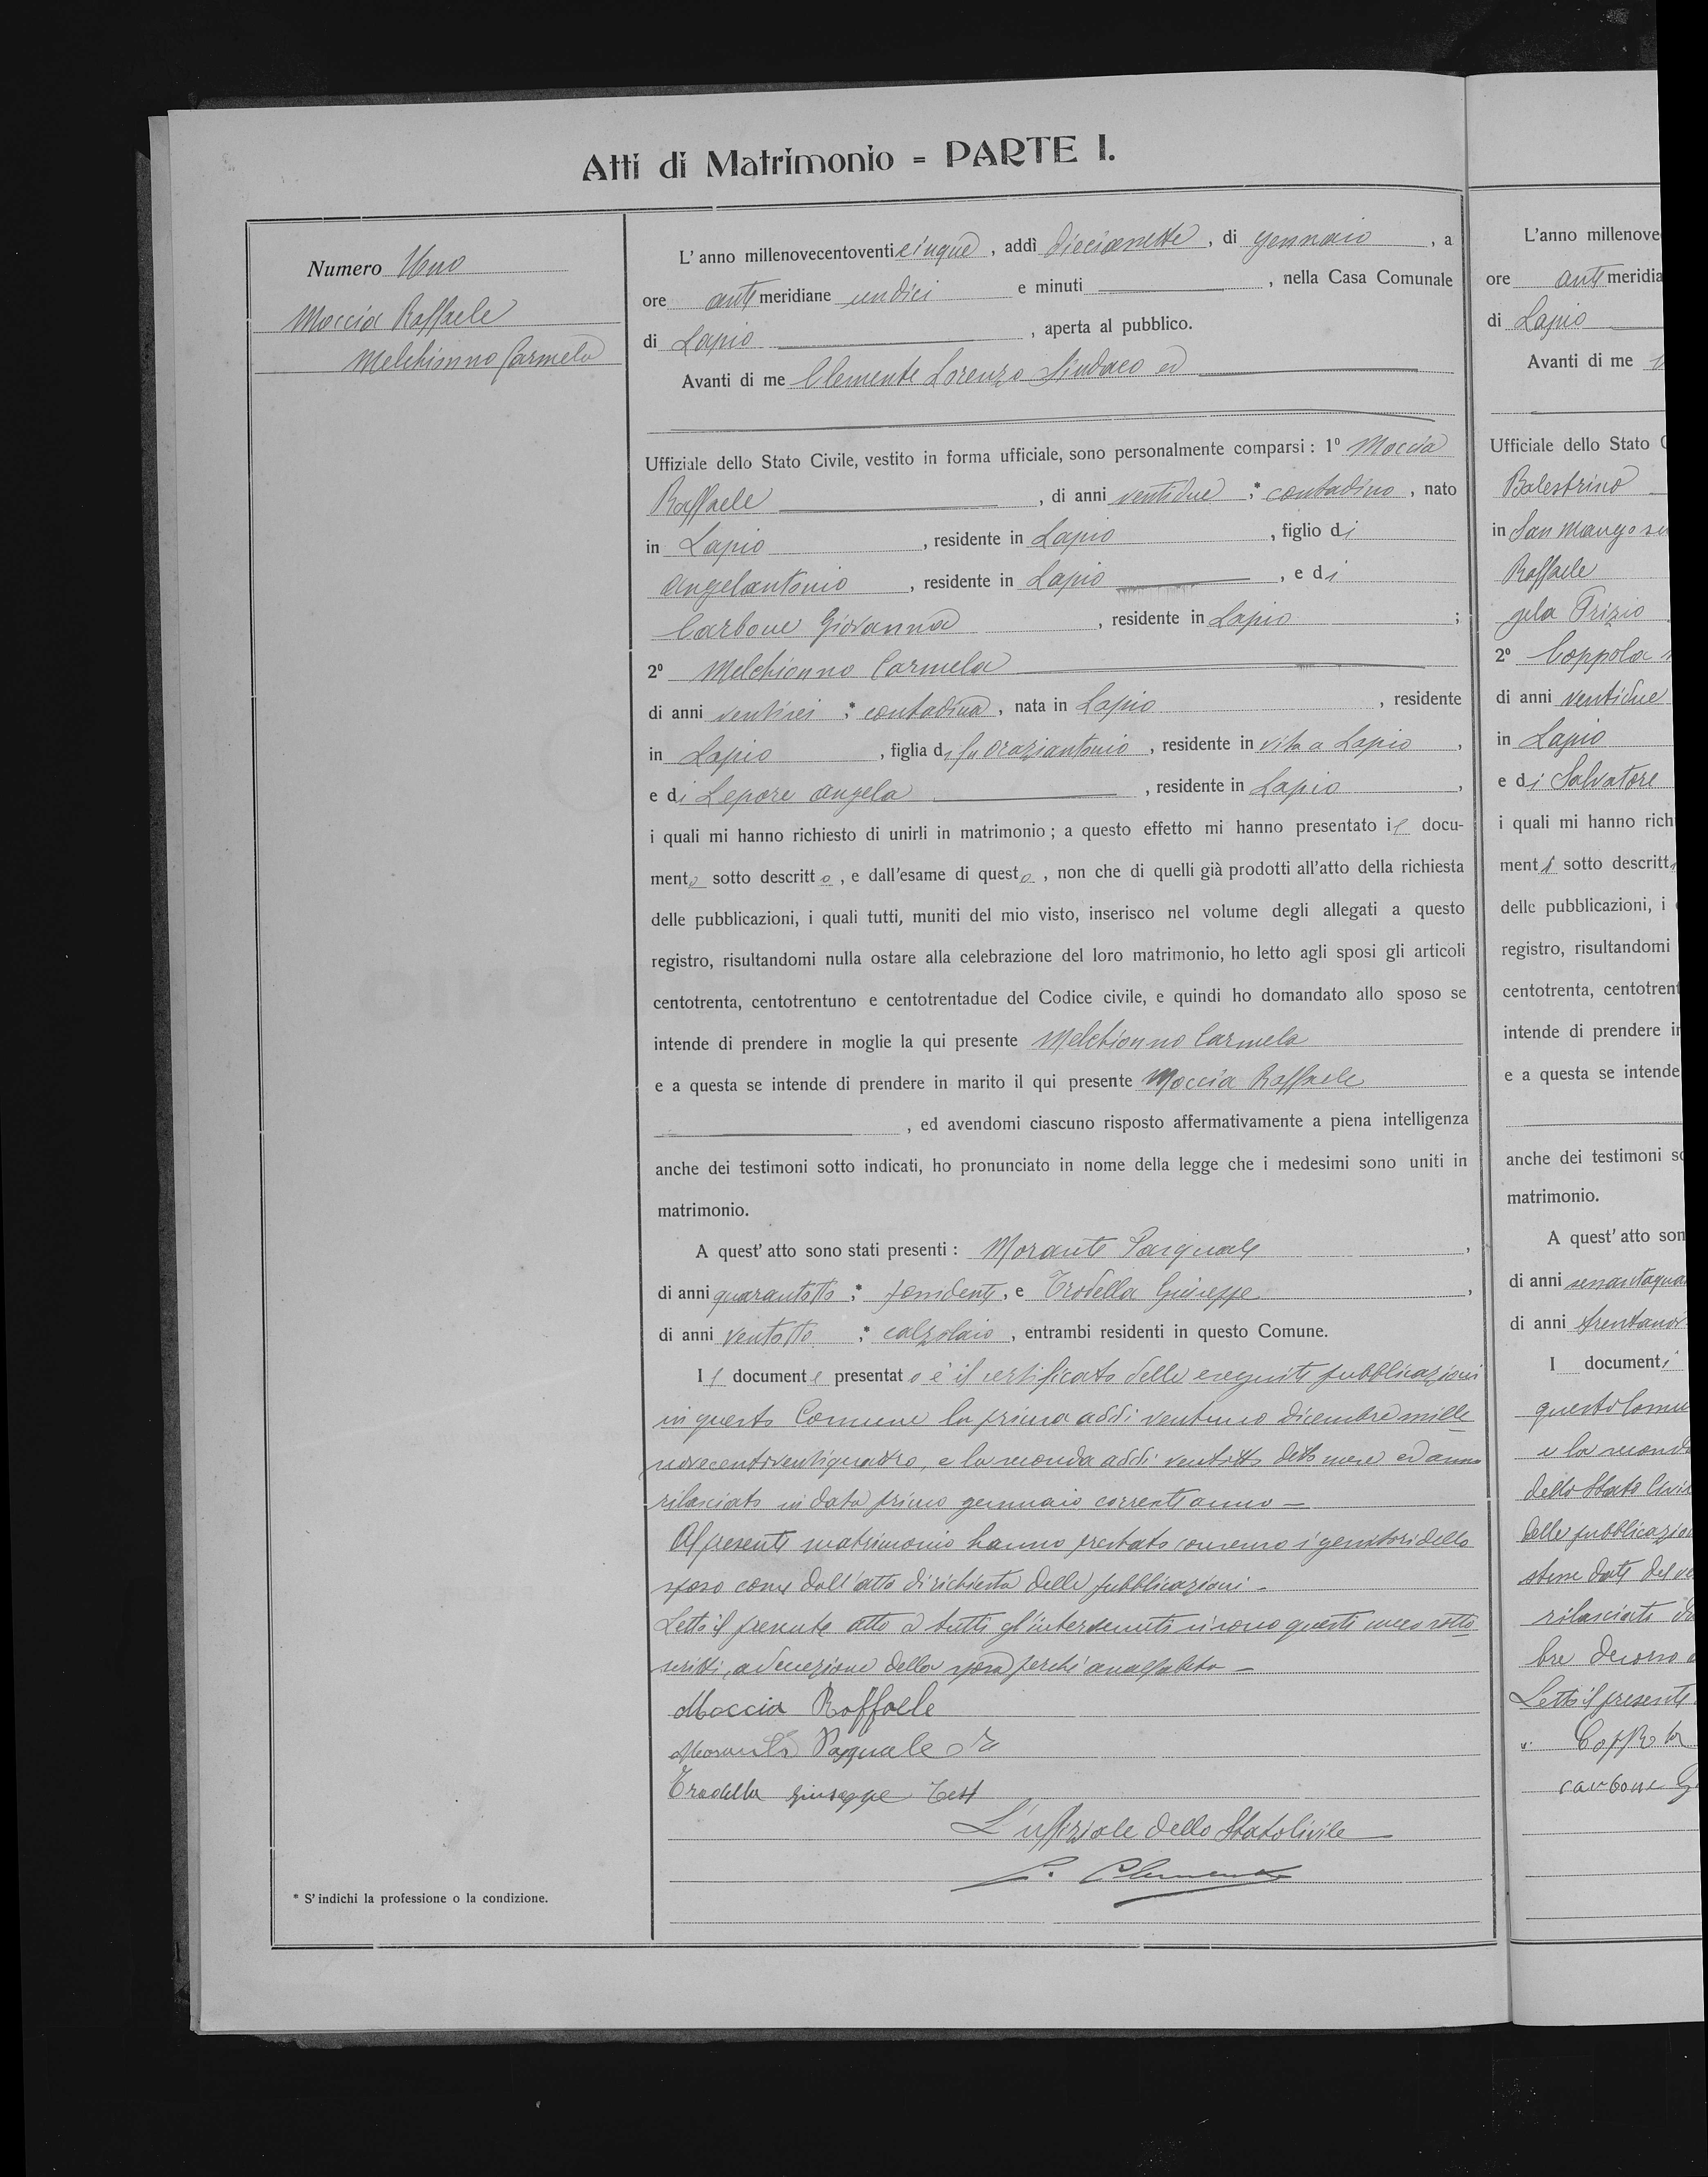 Atti di Matrimonio = PARTE I.
Numero Uno
Moccia Raffaele
Melchionno Carmela
L'anno millenovecentoventicinque, addì diecianette, di gennaio, a
ore antimeridiane undici e minuti, nella Casa Comunale
di Lapio, aperta al pubblico.
Avanti di me Clemente Lorenzo Sindaco ed
Uffiziale dello Stato Civile, vestito in forma ufficiale, sono personalmente comparsi: 1º Moccia
Raffaele, di anni ventidue ;* contadino, nato
in Lapio, residente in Lapio, figlio di
Angelantonio, residente in Lapio, e di
Carbone Giovanna, residente in Lapio ;
2º Melchionno Carmela
di anni ventisei ;* contadina, nata in Lapio, residente
in Lapio, figlia di fu Oraziantonio, residente in vita a Lapio,
e di Lepore Angela, residente in Lapio,
i quali mi hanno richiesto di unirli in matrimonio; a questo effetto mi hanno presentato il docu-
mento sotto descritto, e dall'esame di questo, non che di quelli già prodotti all'atto della richiesta
delle pubblicazioni, i quali tutti, muniti del mio visto, inserisco nel volume degli allegati a questo
registro, risultandomi nulla ostare alla celebrazione del loro matrimonio, ho letto agli sposi gli articoli
centotrenta, centotrentuno e centotrentadue del Codice civile, e quindi ho domandato allo sposo se
intende di prendere in moglie la qui presente Melchionno Carmela
e a questa se intende di prendere in marito il qui presente Moccia Raffaele
, ed avendomi ciascuno risposto affermativamente a piena intelligenza
anche dei testimoni sotto indicati, ho pronunciato in nome della legge che i medesimi sono uniti in
matrimonio.
A quest'atto sono stati presenti: Morante Pasquale,
di anni quarantotto ;* possidente, e Trodella Giuseppe,
di anni ventotto ;* calzolaio, entrambi residenti in questo Comune.
Il documente presentato è il certificato delle eseguite pubblicazioni
in questo Comune la prima addì ventuno dicembre mille
novecentoventiquattro, e la seconda addì ventotto detto mese ed anno
rilasciato in data primo gennaio corrente anno -
Al presente matrimonio hanno prestato consenso i genitori dello
sposo come dall'atto di richiesta delle pubblicazioni -
Letto il presente atto a tutti gl'intervenuti si sono questi meco sotto
scritti, ad eccezione della sposa perché analfabeta -
Moccia Raffaele
Morante Pasquale
Trodella Giuseppe Test
L'uffiziale dello Stato Civile
L. Clemente
* S'indichi la professione o la condizione.
L'anno millenove
ore antimeridia
di Lapio
Avanti di me
Ufficiale dello Stato C
Balestrino
in San Mango su
Raffaele
gela Frizio
2º Coppola
di anni ventidue
in Lapio
e di Salvatore
i quali mi hanno rich
menti sotto descritt
delle pubblicazioni, i
registro, risultandomi
centotrenta, centotrent
intende di prendere in
e a questa se intende
anche dei testimoni so
matrimonio.
A quest'atto son
di anni sessantaqua
di anni trentanov
I documenti
questo Comu
e la second
dello Stato Civi
delle pubblicazion
stesse date del ve
rilasciate
bre decorso
Letto il presente
carbone G